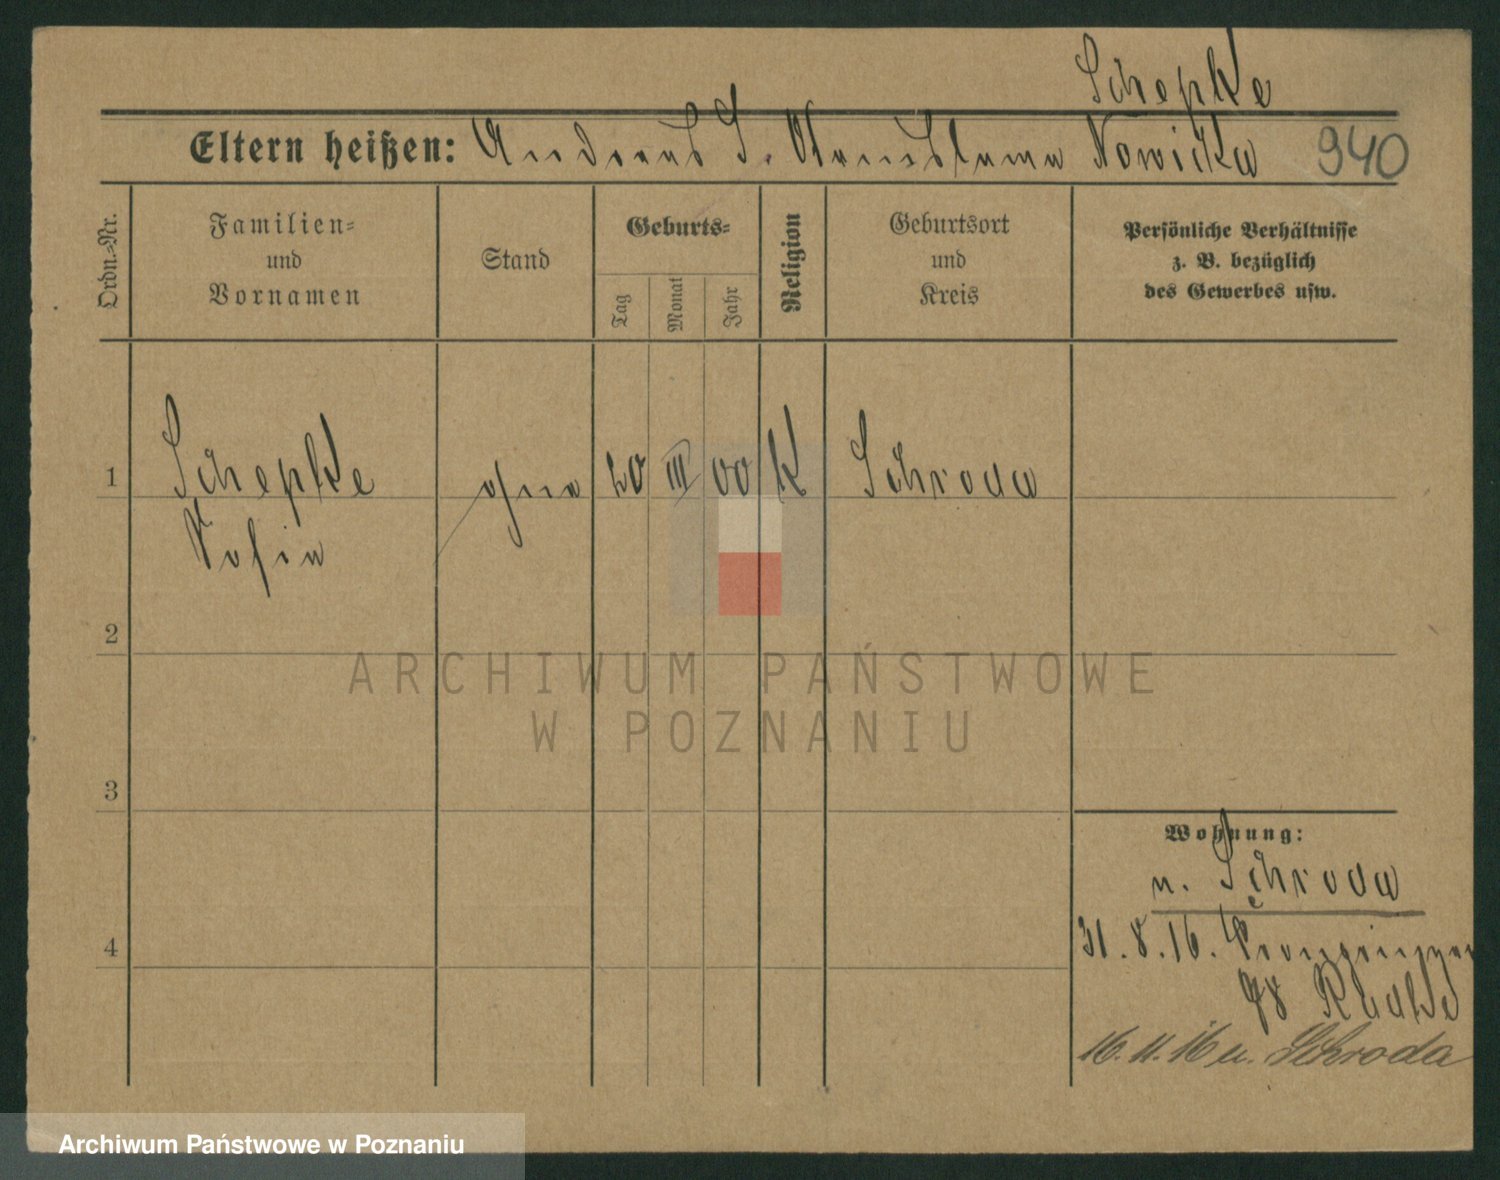 Schepke
Eltern heißen: Andreas S. Constantia Nowicka 940
Ordn.-Nr.
Familien-
und
Vornamen
Stand
Geburts-
Tag
Monat
Jahr
Religion
Geburtsort
und
Kreis
Persönliche Verhältnisse
z. B. bezüglich
des Gewerbes usw.
1 Schepke ohne 20 III 00 K Schroda
Sofia
2
ARCHIWUM PAŃSTWOWE
W POZNANIU
3
Wohnung:
n. Schroda
4
31.8.16.
98
16.11.16 n. Schroda
Archiwum Państwowe w Poznaniu